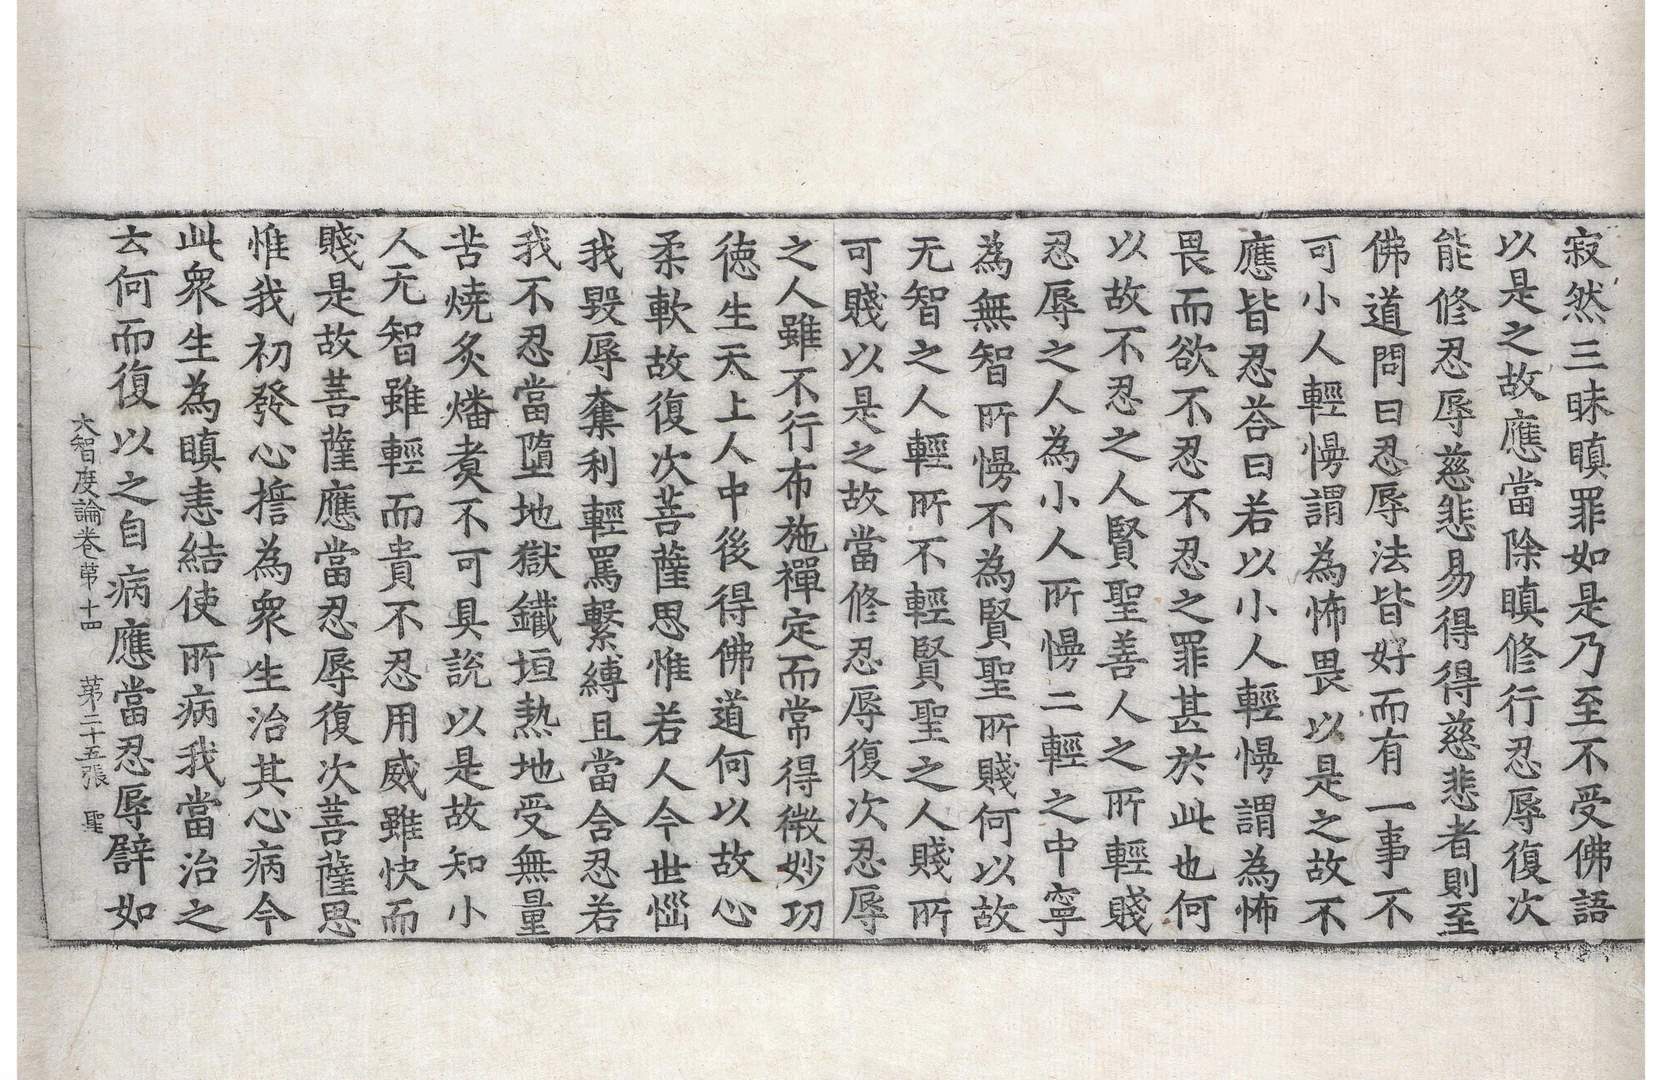 寂然三昧瞋罪如是乃至不受佛語
以是之故應當除瞋修行忍辱復次
能修忍辱慈悲易得得慈悲者則至
佛道問曰忍辱法皆好而有一事不
可小人輕慢謂為怖畏以是之故不
應皆忍荅曰若以小人輕慢謂為怖
畏而欲不忍不忍之罪甚於此也何
以故不忍之人賢聖善人之所輕賤
忍辱之人為小人所慢二輕之中寧
為無智所慢不為賢聖所賤何以故
无智之人輕所不輕賢聖之人賤所
可賤以是之故當修忍辱復次忍辱
之人雖不行布施禪定而常得微妙功
徳生天上人中後得佛道何以故心
柔軟故復次菩薩思惟若人今世惱
我毀辱奪利輕罵繫縛且當含忍若
我不忍當墮地獄鐵垣熱地受無量
苦燒炙燔煑不可具說以是故知小
人无智雖輕而貴不忍用威雖快而
賤是故菩薩應當忍辱復次菩薩思
惟我初發心擔為衆生治其心病今
此衆生為瞋恚結使所病我當治之
云何而復以之自病應當忍辱譬如
大智度論卷苐十四 苐二十五張 聖